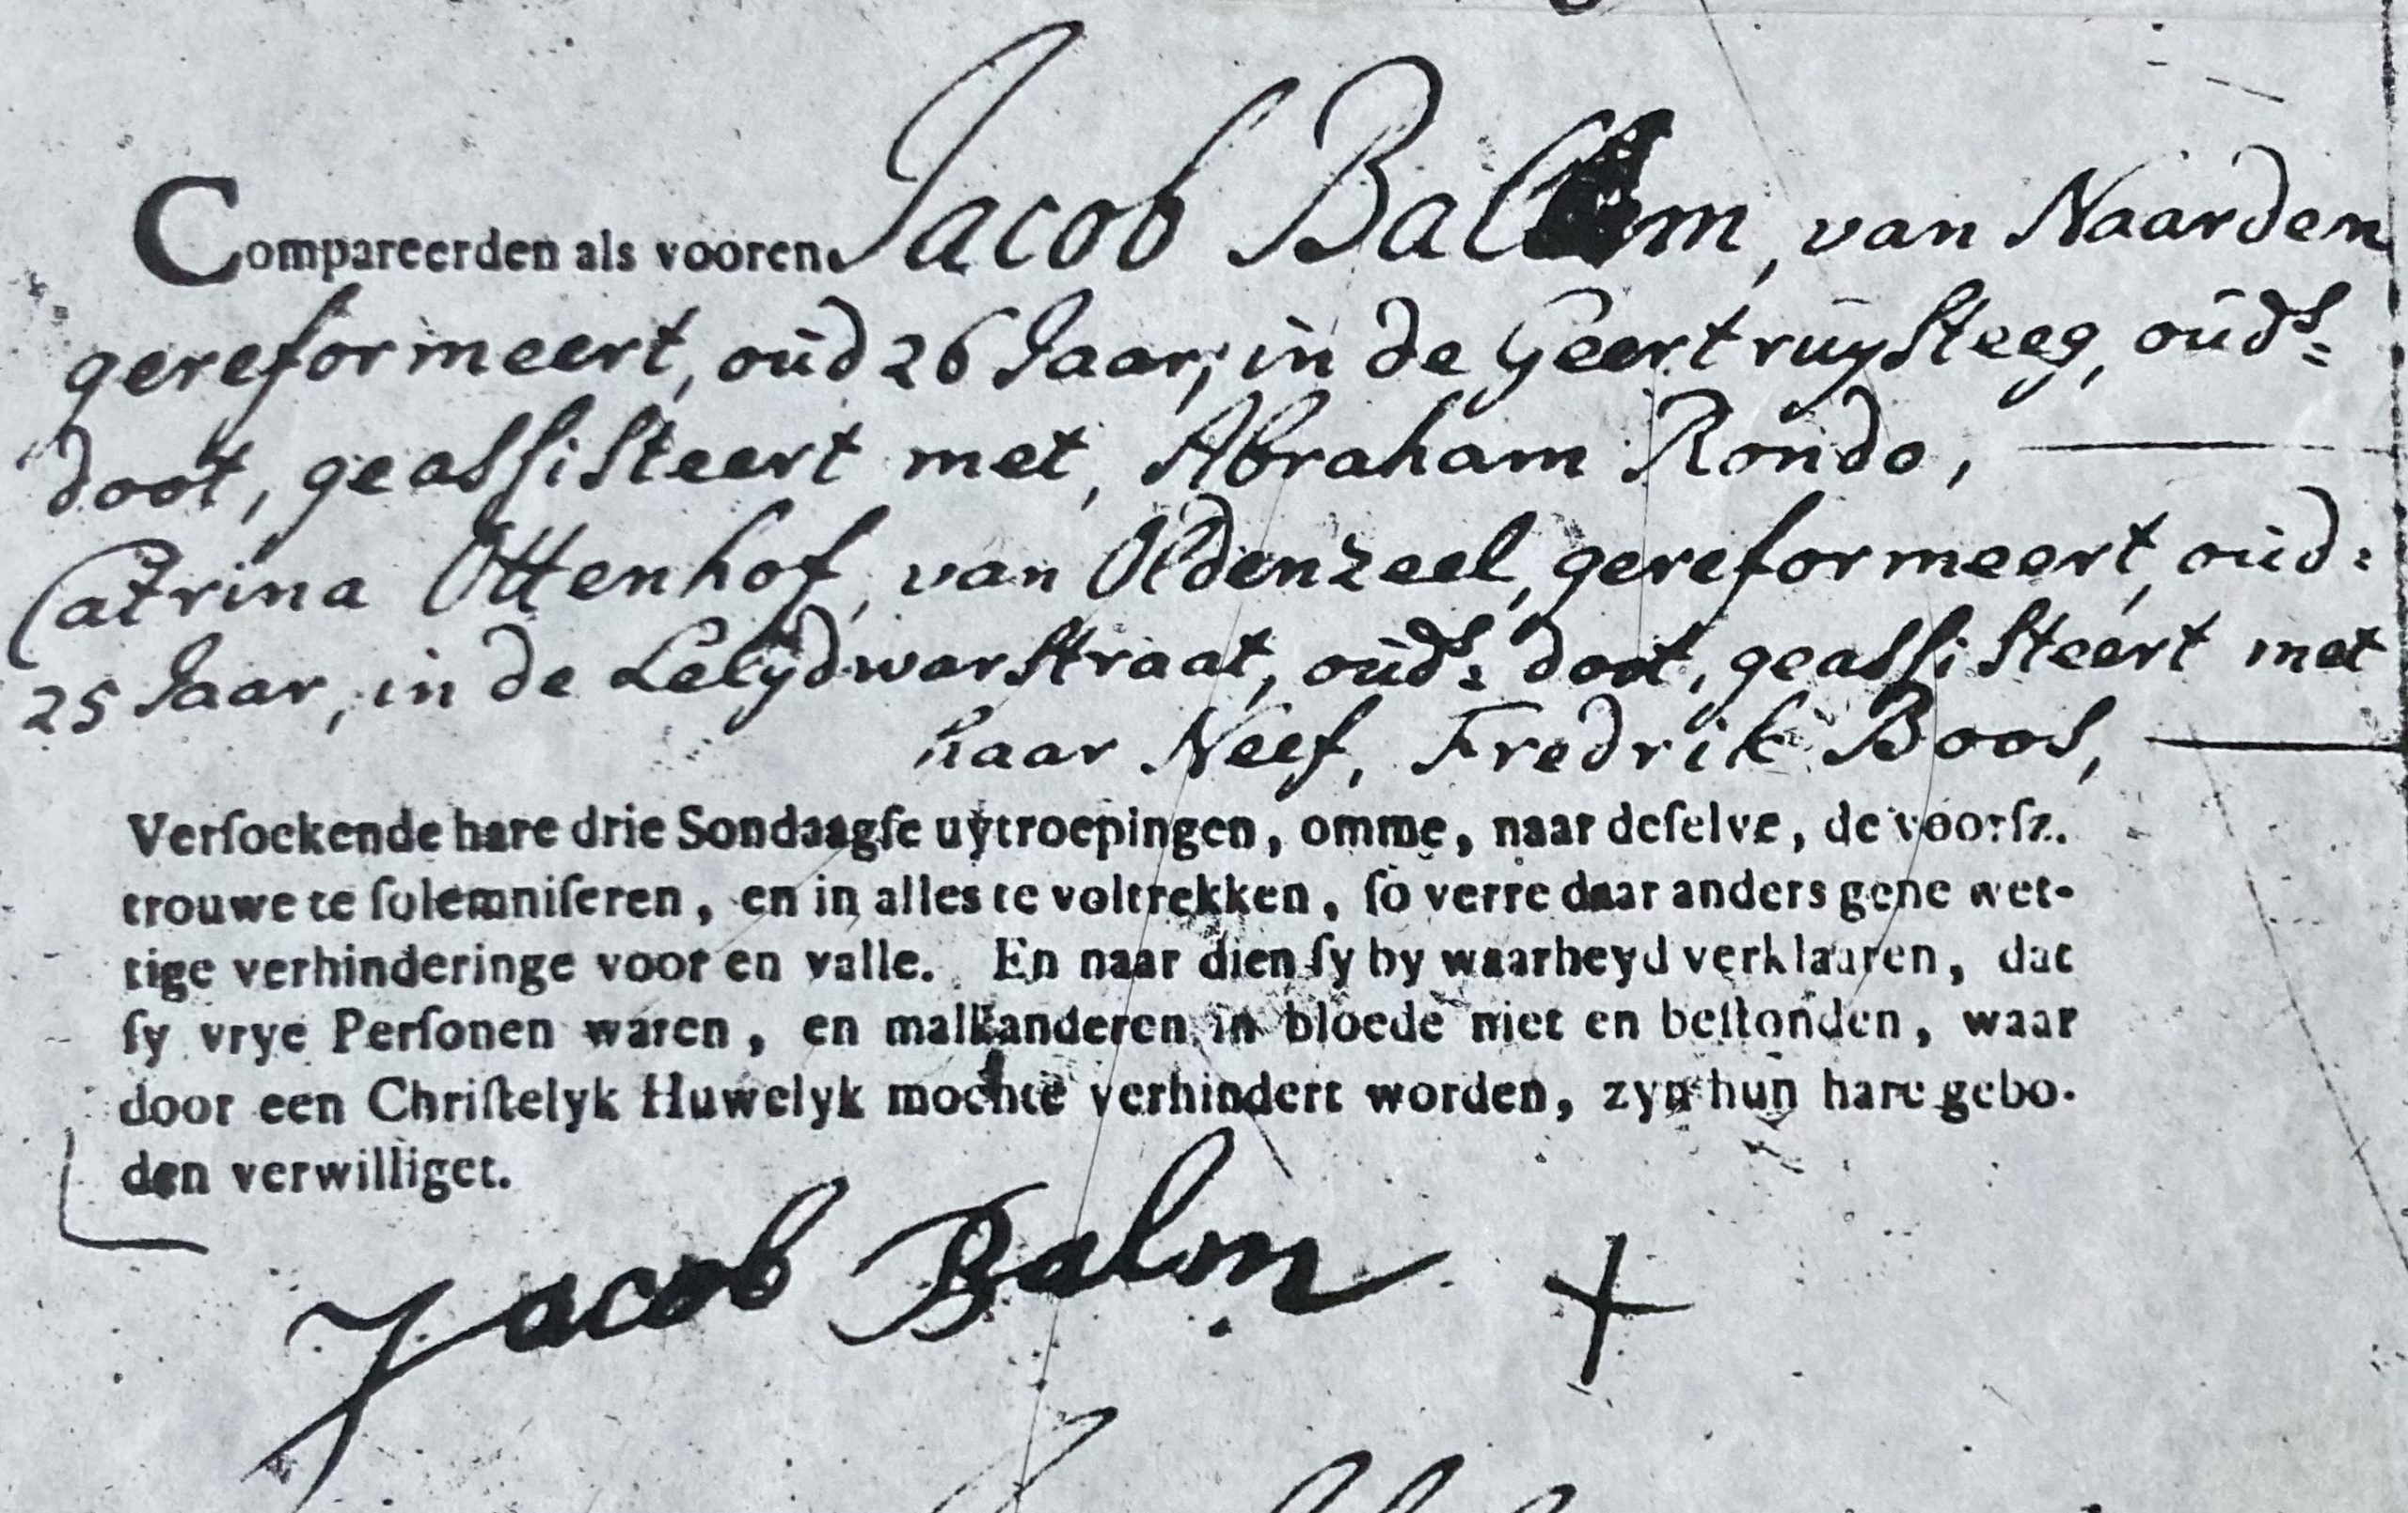 Compareerden als vooren Jacob Balm, van Naarden
gereformeert, oud 26 Jaar, in de Geertruysteeg, ouds:
doot, geassisteert met, Abraham Rondo,
Catrina Ottenhof, van Oldenzeel, gereformeert, oud:
25 Jaar, in de Lelydwarstraat, ouds: doot, geassisteert met
haar Neef, Fredrik Boos,
Verſoekende hare drie Sondaagſe uytroepingen, omme, naar deſelve, de voorſz.
trouwe te ſolemniſeren, en in alles te voltrekken, ſo verre daar anders gene wet-
tige verhinderinge voor en valle. En naar dien ſy by waarheyd verklaaren, dat
ſy vrye Perſonen waren, en malkanderen in bloede niet en beſtonden, waar
door een Chriſtelyk Huwelyk mochte verhindert worden, zyn hun hare gebo-
den verwilliget.
Jacob Balm +